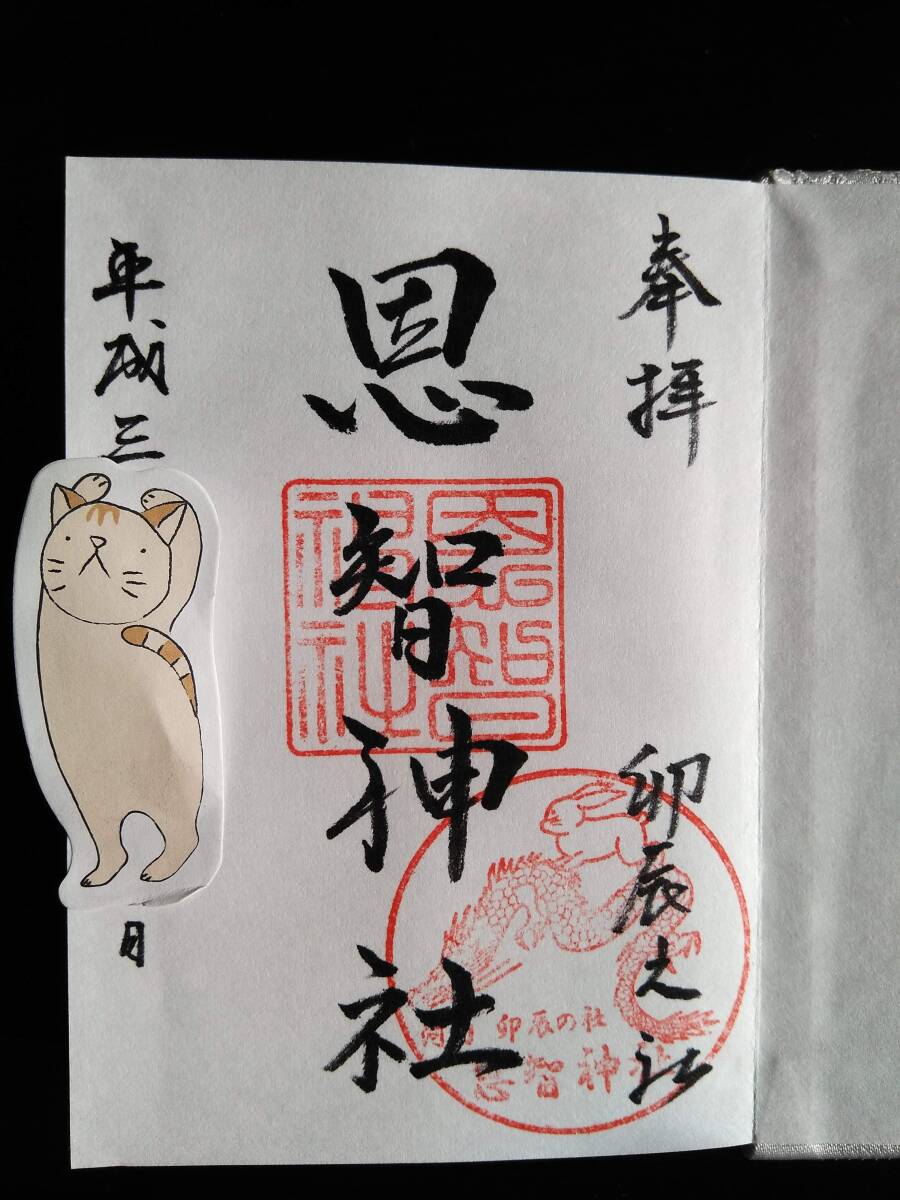 奉拝
卯辰之社
恩智神社
恩智
神社
卯辰の社
恩智神社
平成三
日